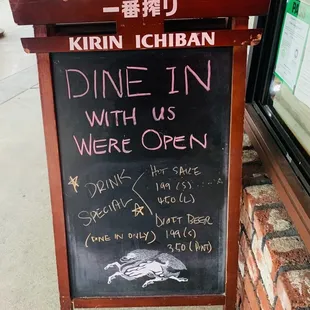 一番搾り
KIRIN ICHIBAN
DINE IN
WITH US
WERE OPEN
DRINK
SPECIAL
(DINE IN ONLY)
HOT SAKE
199 (S)
450 (L)
DRAFT BEER
199 (S)
350 (PINT)